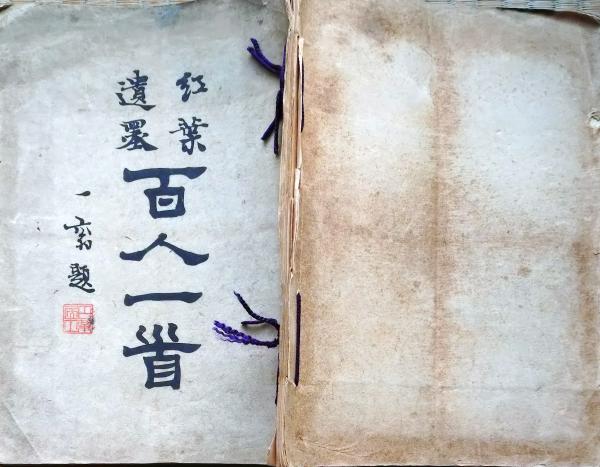 紅葉
遺墨
百人一首
一 題